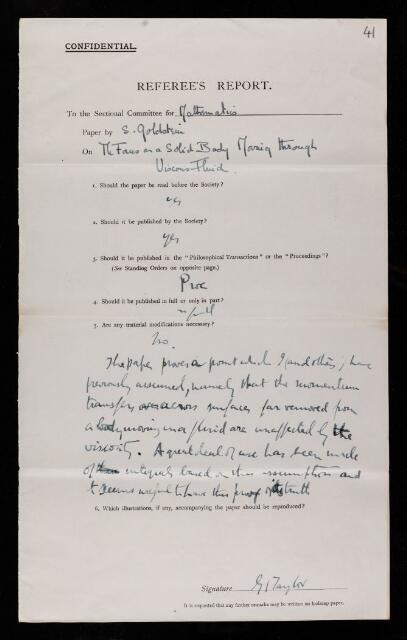 41
CONFIDENTIAL.
REFEREE'S REPORT.
To the Sectional Committee for Mathematics
Paper by S. Goldstein
On The Forces on a Solid Body Moving through
Viscous Fluid.
1. Should the paper be read before the Society?
yes
2. Should it be published by the Society?
yes
3. Should it be published in the "Philosophical Transactions" or the "Proceedings"?
(See Standing Orders on opposite page.)
Proc
4. Should it be published in full or only in part?
in full
5. Are any material modifications necessary?
No.
The paper proves a point which I and others, have
previously assumed, namely that the momentum
transfers across surfaces far removed from
a body moving in a fluid are unaffected by the
viscosity. A great deal of use has been made
of integrals based on this assumption and
it seems useful to have this proof of its truth
6. Which illustrations, if any, accompanying the paper should be reproduced?
Signature G I Taylor
It is requested that any further remarks may be written on foolscap paper.